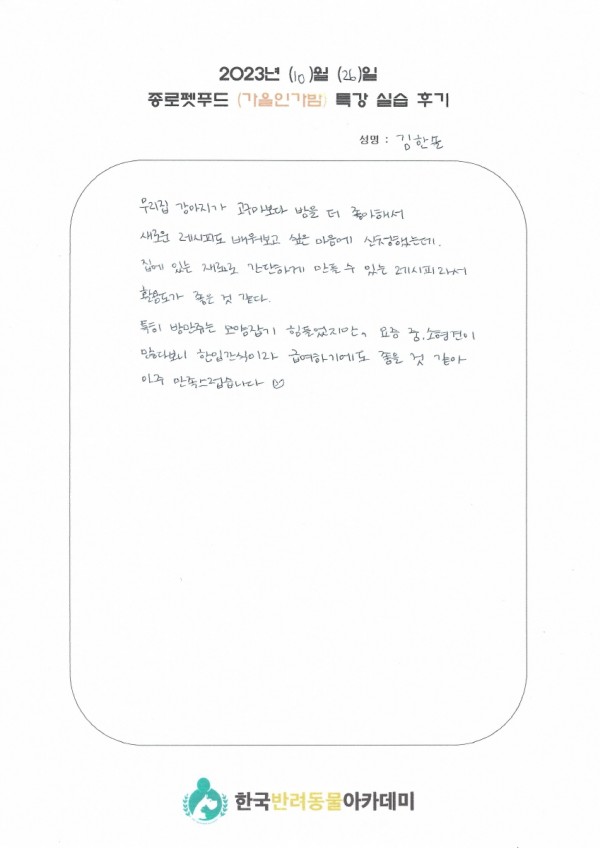 2023년 (10)월 (26)일
종로펫푸드 (가을인가밤) 특강 실습 후기
성명 : 김한솔
우리집 강아지가 고구마보다 밤을 더 좋아해서
새로운 레시피도 배워보고 싶은 마음에 신청했는데.
집에 있는 재료로 간단하게 만들 수 있는 레시피라서
활용도가 좋은 것 같다.
특히 밤만쥬는 모양잡기 힘들었지만, 요즘 중,소형견이
많다보니 한입간식이라 급여하기에도 좋을 것 같아
아주 만족스럽습니다 ♡
한국반려동물아카데미